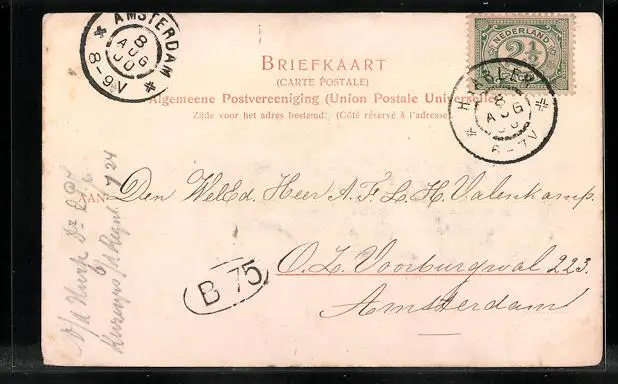 AMSTERDAM
8 AUG 00
8-9V
NEDERLAND
2½
HAARLEM
8 AUG 00
6-7V
BRIEFKAART
(CARTE POSTALE)
Algemeene Postvereeniging (Union Postale Universelle)
Zijde voor het adres bestemd. (Côté réservé à l'adresse)
AAN Den WelEd. Heer A. F. L. H. Valenkamp.
O. Z. Voorburgwal 223.
Amsterdam
B 75